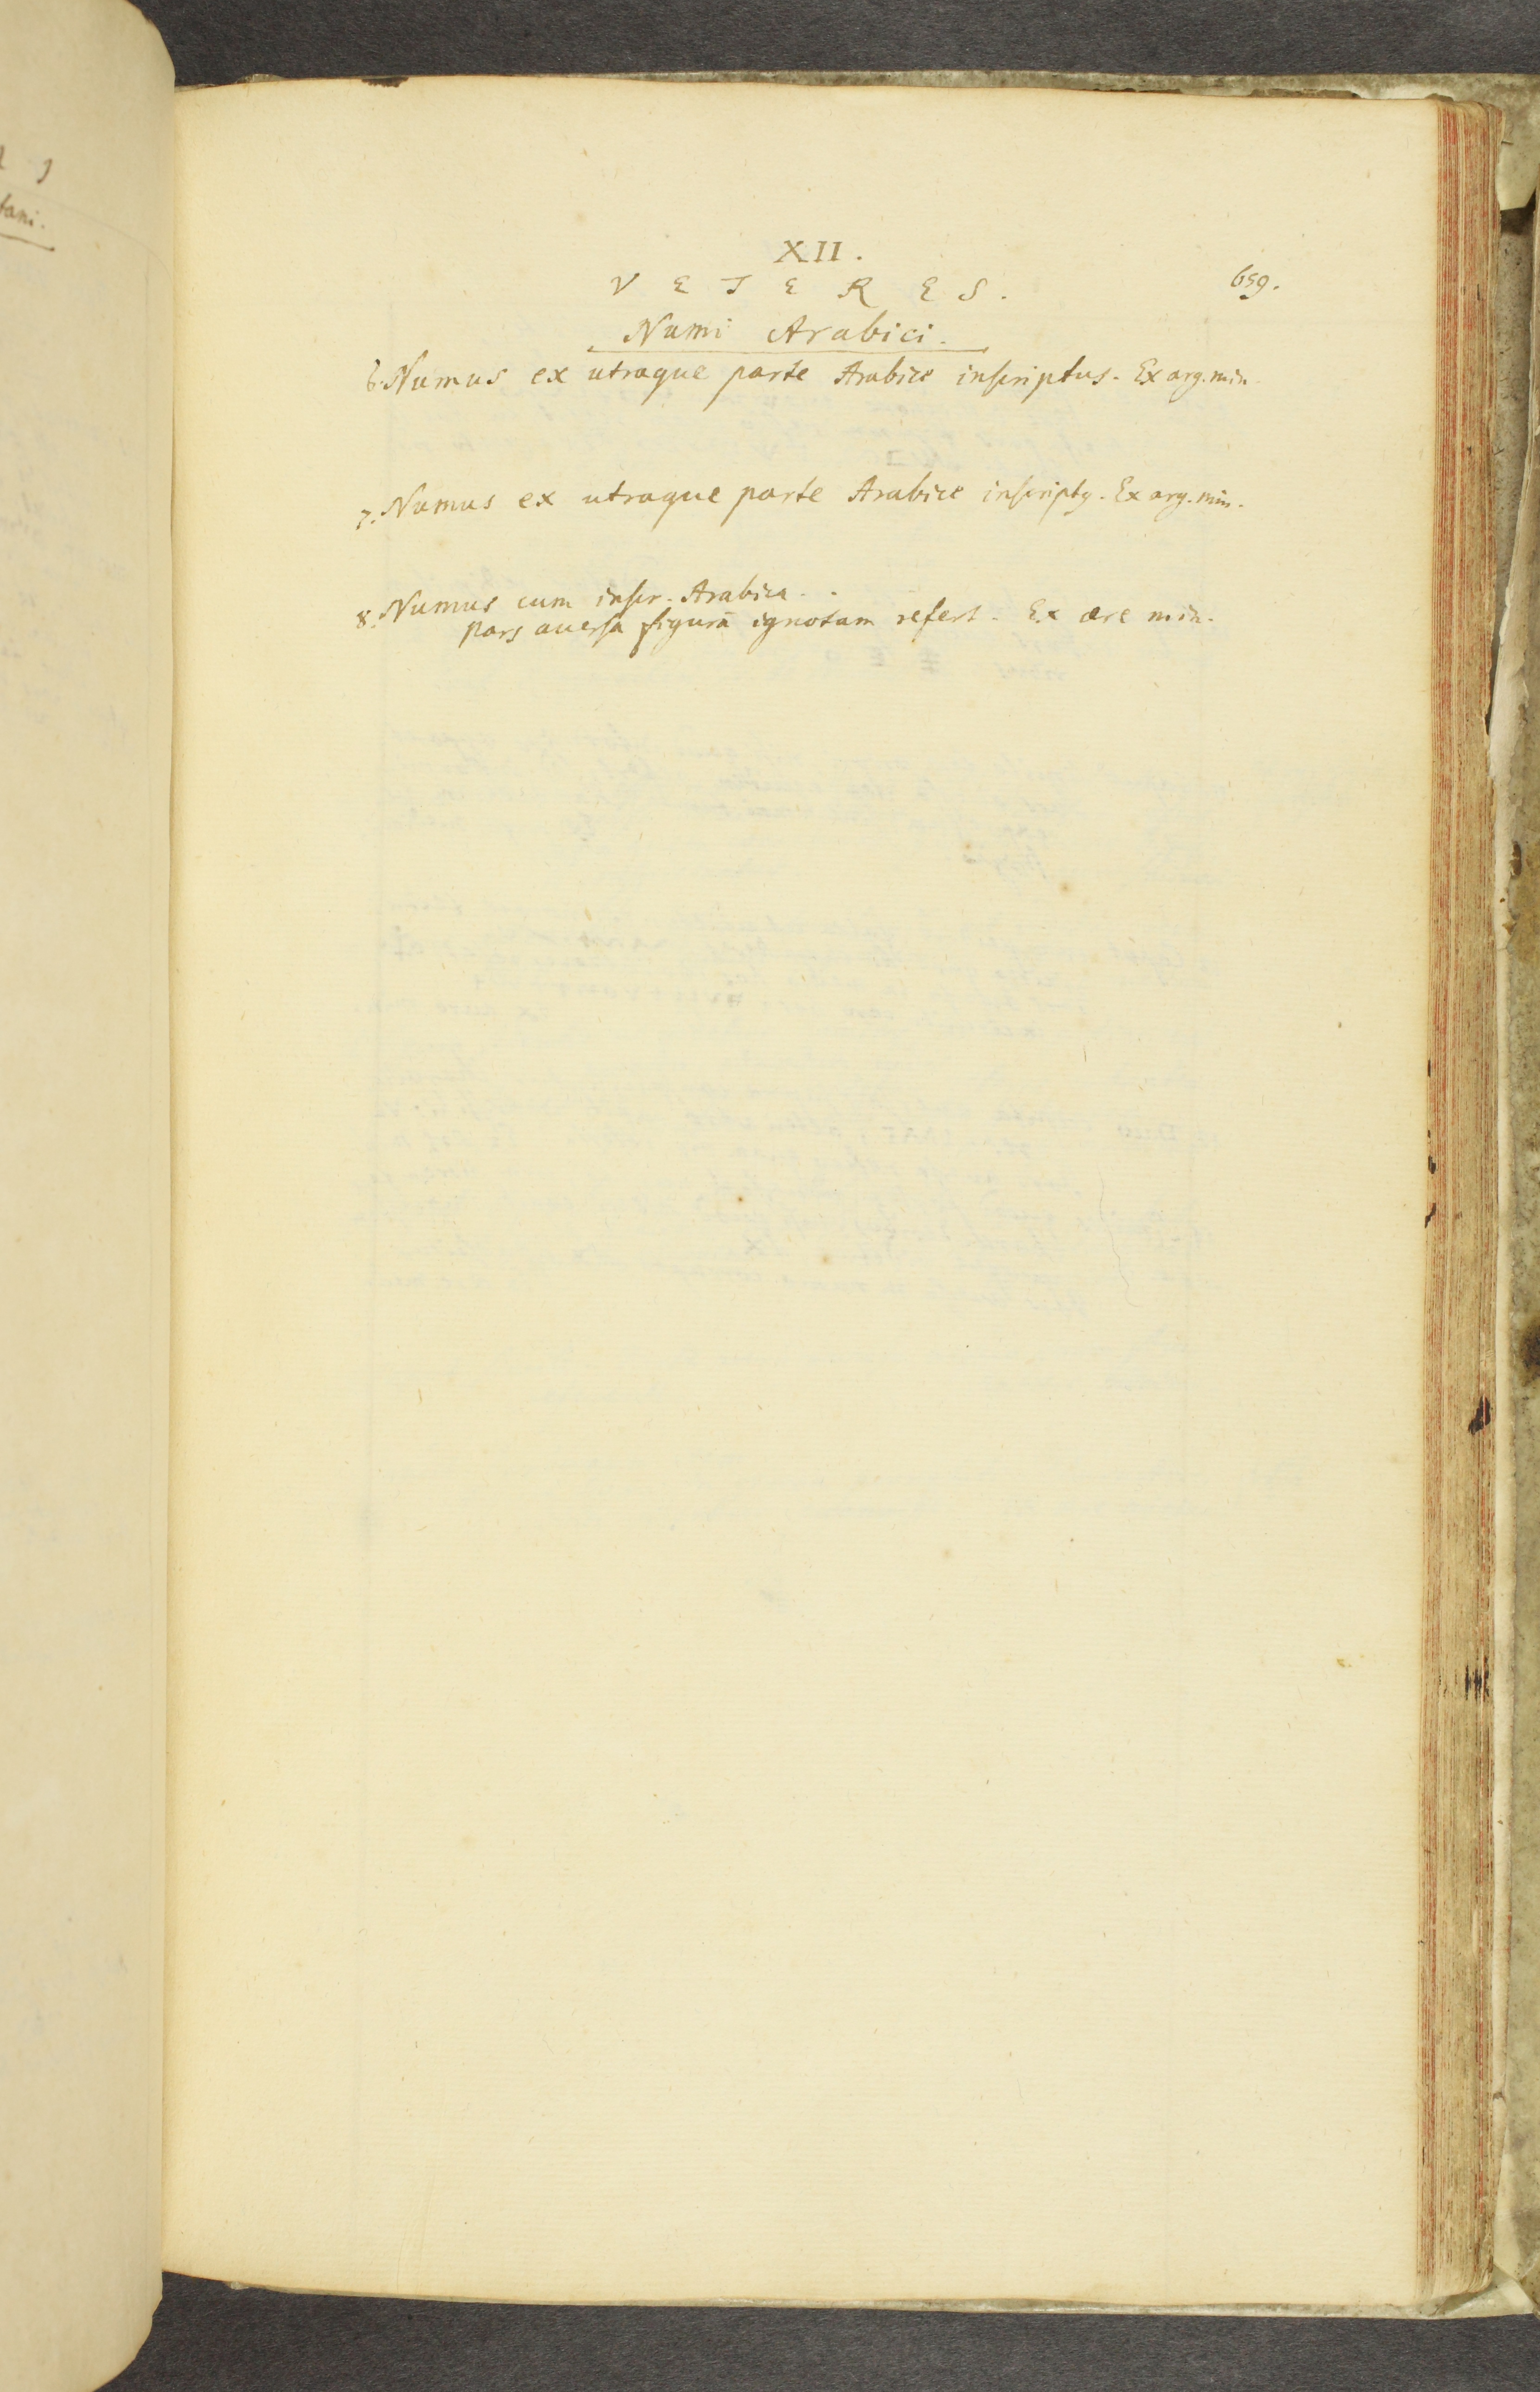 XII.
VETERES.
659.
Numi Arabici.
6. Numus ex utraque parte Arabice inscriptus. Ex arg. min.
7. Numus ex utraque parte Arabice inscriptꝫ. Ex arg. min.
8. Numus cum inscr. Arabica.
pars auersa figurā ignotam refert. Ex ære min.
tani.